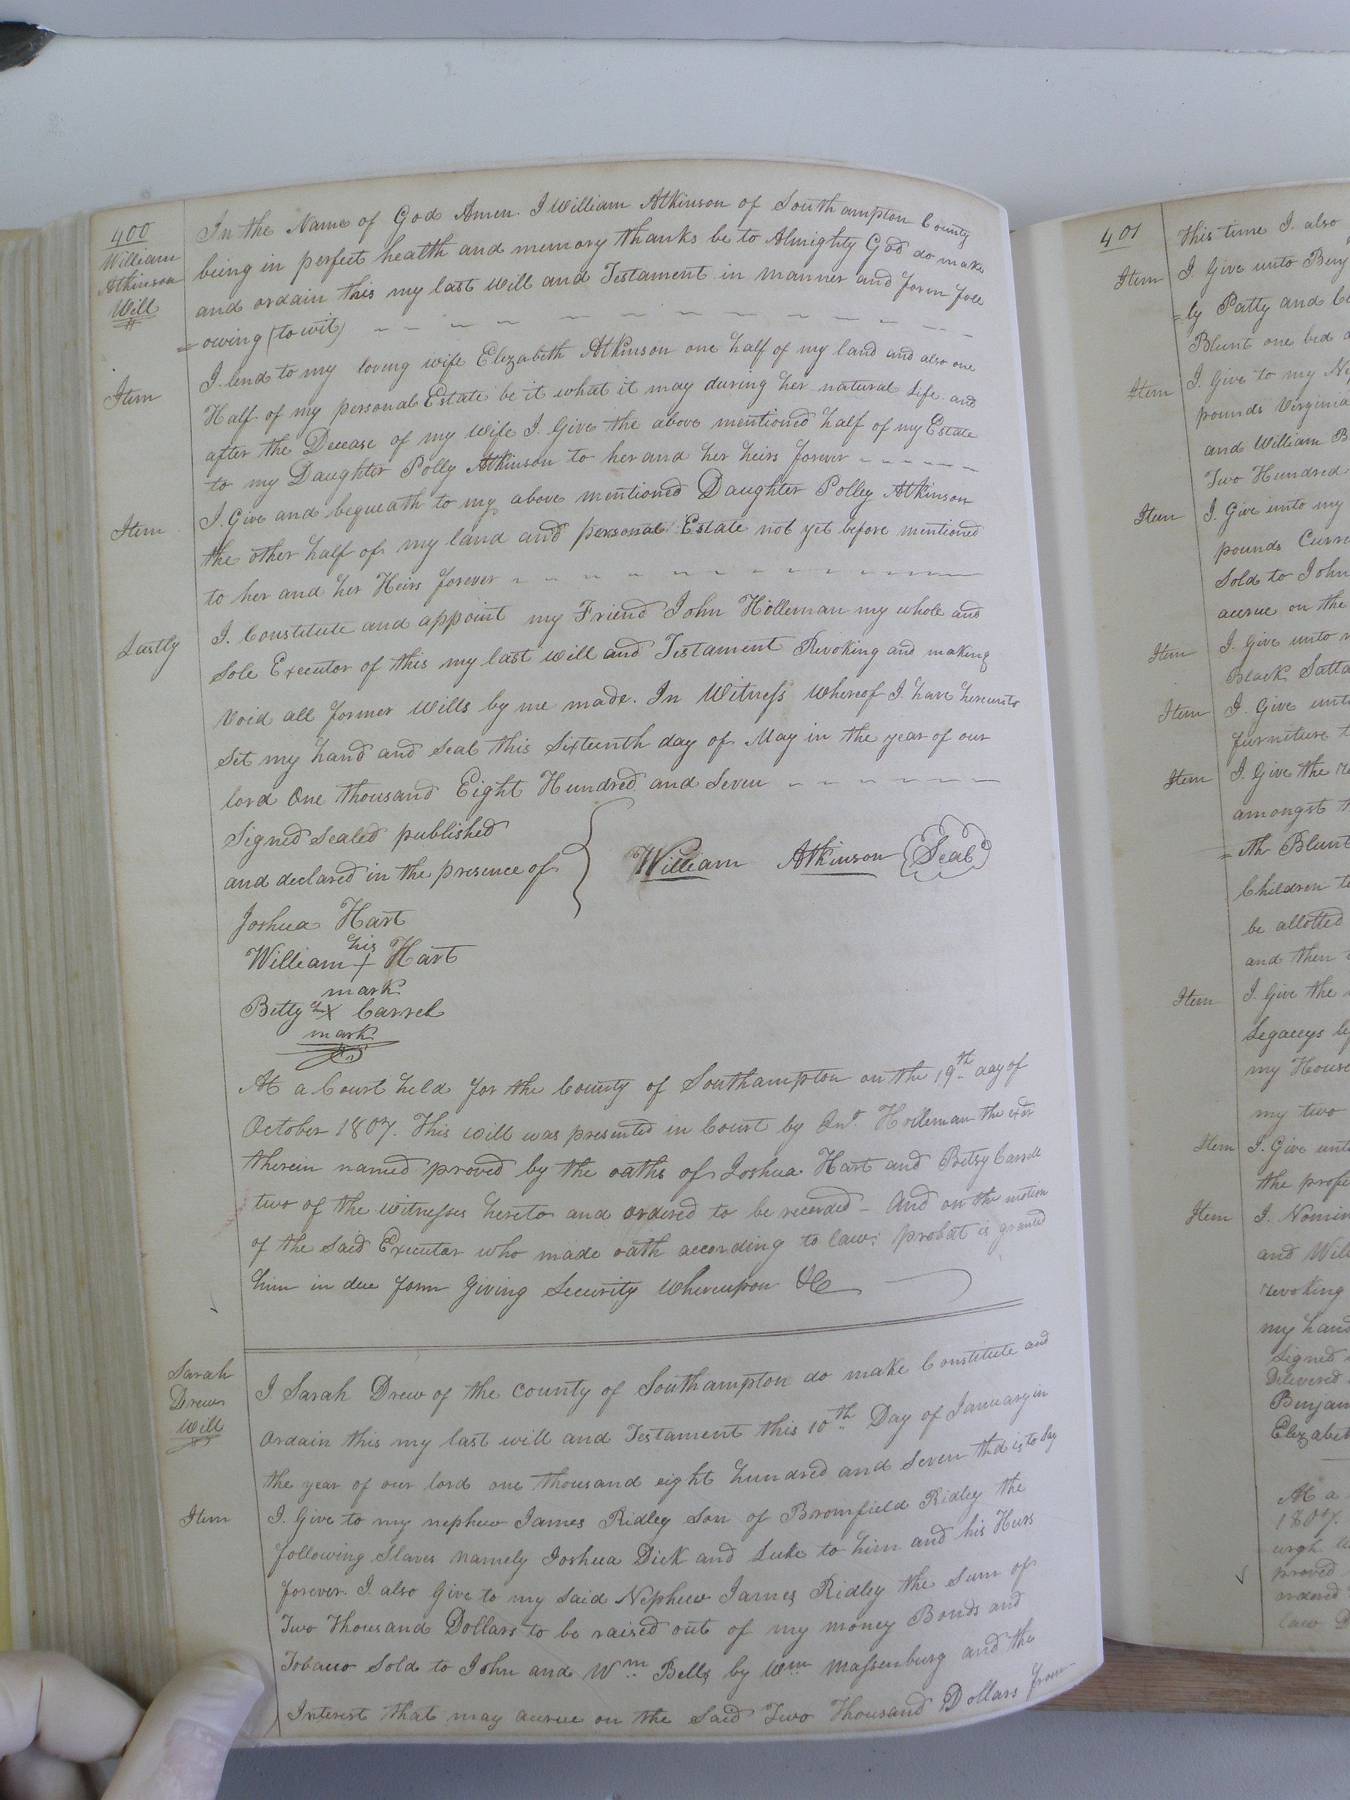 400
William
Atkinson
Will
In the Name of God Amen. I William Atkinson of Southampton County
being in perfect health and memory thanks be to Almighty God do make
and ordain this my last Will and Testament in manner and form foll
=owing (to wit)
Item I lend to my loving wife Elizabeth Atkinson one half of my land and also one
Half of my personal Estate be it what it may during her natural Life and
after the Decease of my wife I. Give the above mentioned half of my Estate
to my Daughter Polly Atkinson to her and her heirs forever
Item I. Give and bequeath to my above mentioned Daughter Polley Atkinson
the other half of my land and personal Estate not yet before mentioned
to her and her Heirs forever
Lastly I. Constitute and appoint my Friend John Holleman my whole and
Sole Executor of this my last will and Testament Revoking and making
void all former Wills by me made. In Witness whereof I. have hereunto
Set my hand and Seal this Sixteenth day of May in the year of our
lord One thousand Eight Hundred and Seven
Signed Sealed published
and declared in the presence of William Atkinson (Seal)
Joshua Hart
his
William + Hart
mark
Betty X Carrel
mark
At a Court held for the County of Southampton on the 19th day of
October 1807. This will was presented in Court by Jno. Holleman the exor
therein named proved by the oaths of Joshua Hart and Betsy Carrell
two of the witnesses hereto and ordered to be recorded - And on the motion
of the Said Executor who made oath according to law: probat is granted
him in due form Giving Security whereupon &C
Sarah
Drews
Will
I Sarah Drew of the county of Southampton do make Constitute and
Ordain this my last will and Testament this 10th Day of January in
the year of our lord one thousand eight hundred and Seven that is to Say
Item I. Give to my nephew James Ridley Son of Bromfield Ridley the
following Slaves namely Joshua Dick and Luke to him and his Heirs
forever. I also Give to my Said Nephew James Ridley the Sum of
Two Thousand Dollars to be raised out of my money Bonds and
Tobacco Sold to John and Wm Bells by Wm Massenburg and the
Interest that may accrue on the Said Two Thousand Dollars from
401
this time I. also
Item I. Give unto Benj
=ly Patty and
Blunt one bed
Item I. Give to my
pounds Virginia
and William B
Two Hundred
Item I. Give unto my
pounds Curr
Sold to John
accrue on the
Item I. Give unto
Black Satta
Item I. Give unto
furniture
Item I. Give the
amongst
=th Blunt
Children
be allotted
and then
Item I. Give the
Legaceys
my House
my two
Item I. Give unto
the
Item I. Nomin
and Will
revoking
my hand
Signed
Delivered
Benjam
Elizabet
At a
1807.
proved
law